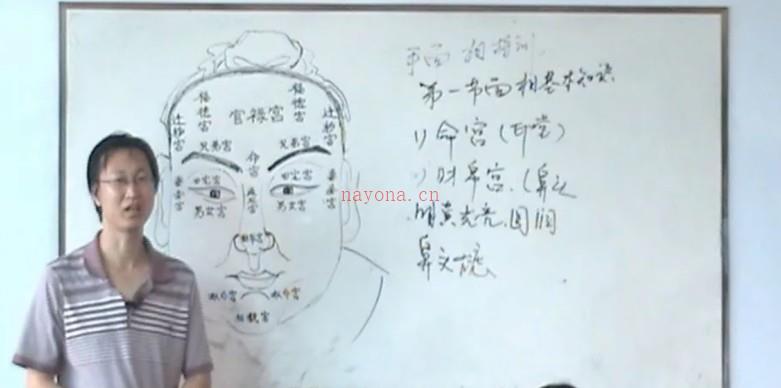 官禄宫
福德宫
福德宫
迁移宫
迁移宫
兄弟宫
兄弟宫
命宫
田宅宫
田宅宫
妻妾宫
妻妾宫
疾厄宫
男女宫
男女宫
财帛宫
奴仆宫
奴仆宫
相貌宫
平面相培训
第一节面相基本知识
1)命宫(印堂)
)财帛宫(鼻
明黄光亮、圆润
nayona.cn